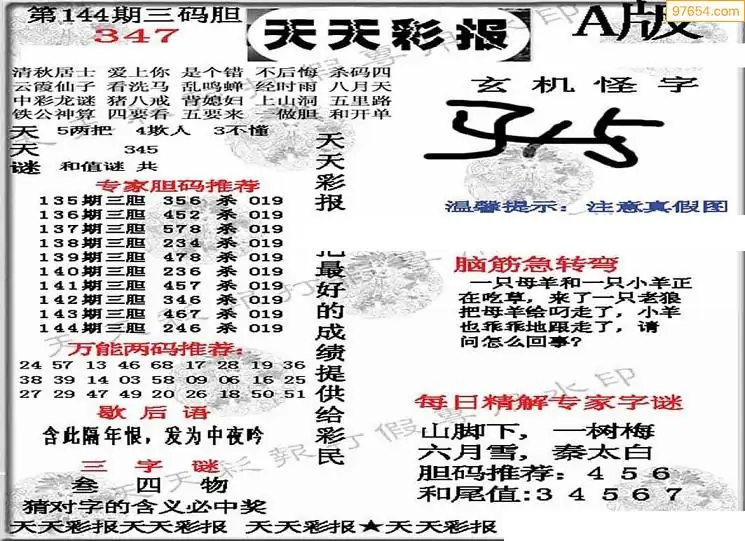 第144期三码胆
347
天天彩报
A版
97654.com
清秋居士 爱上你 是个错 不后悔 杀码四
云霞仙子 看洗马 乱鸣蝉 经时雨 八月天
中彩龙谜 猪八戒 背媳妇 上山洞 五里路
铁公神算 四要看 五要来 一做胆 和开单
天 5两把 4欺人 3不懂
天 345
谜 和值谜 共
专家胆码推荐
135期三胆 356 杀 019
136期三胆 452 杀 019
137期三胆 578 杀 019
138期三胆 234 杀 019
139期三胆 478 杀 019
140期三胆 236 杀 019
141期三胆 457 杀 019
142期三胆 346 杀 019
143期三胆 467 杀 019
144期三胆 246 杀 019
万能两码推荐:
24 57 13 46 68 17 28 19 36
38 39 14 03 58 09 06 16 25
27 29 47 49 20 26 18 50 51
歇后语
含此隔年恨，发为中夜吟
三字谜
叁四物
猜对字的含义必中奖
天天彩报
把最好的成绩提供给彩民
玄机怪字
温馨提示: 注意真假图
脑筋急转弯
一只母羊和一只小羊正
在吃草，来了一只老狼
把母羊给叼走了，小羊
也乖乖地跟走了，请
问怎么回事?
每日精解专家字谜
山脚下，一树梅
六月雪，秦太白
胆码推荐: 456
和尾值:34567
天天彩报天天彩报 天天彩报★天天彩报